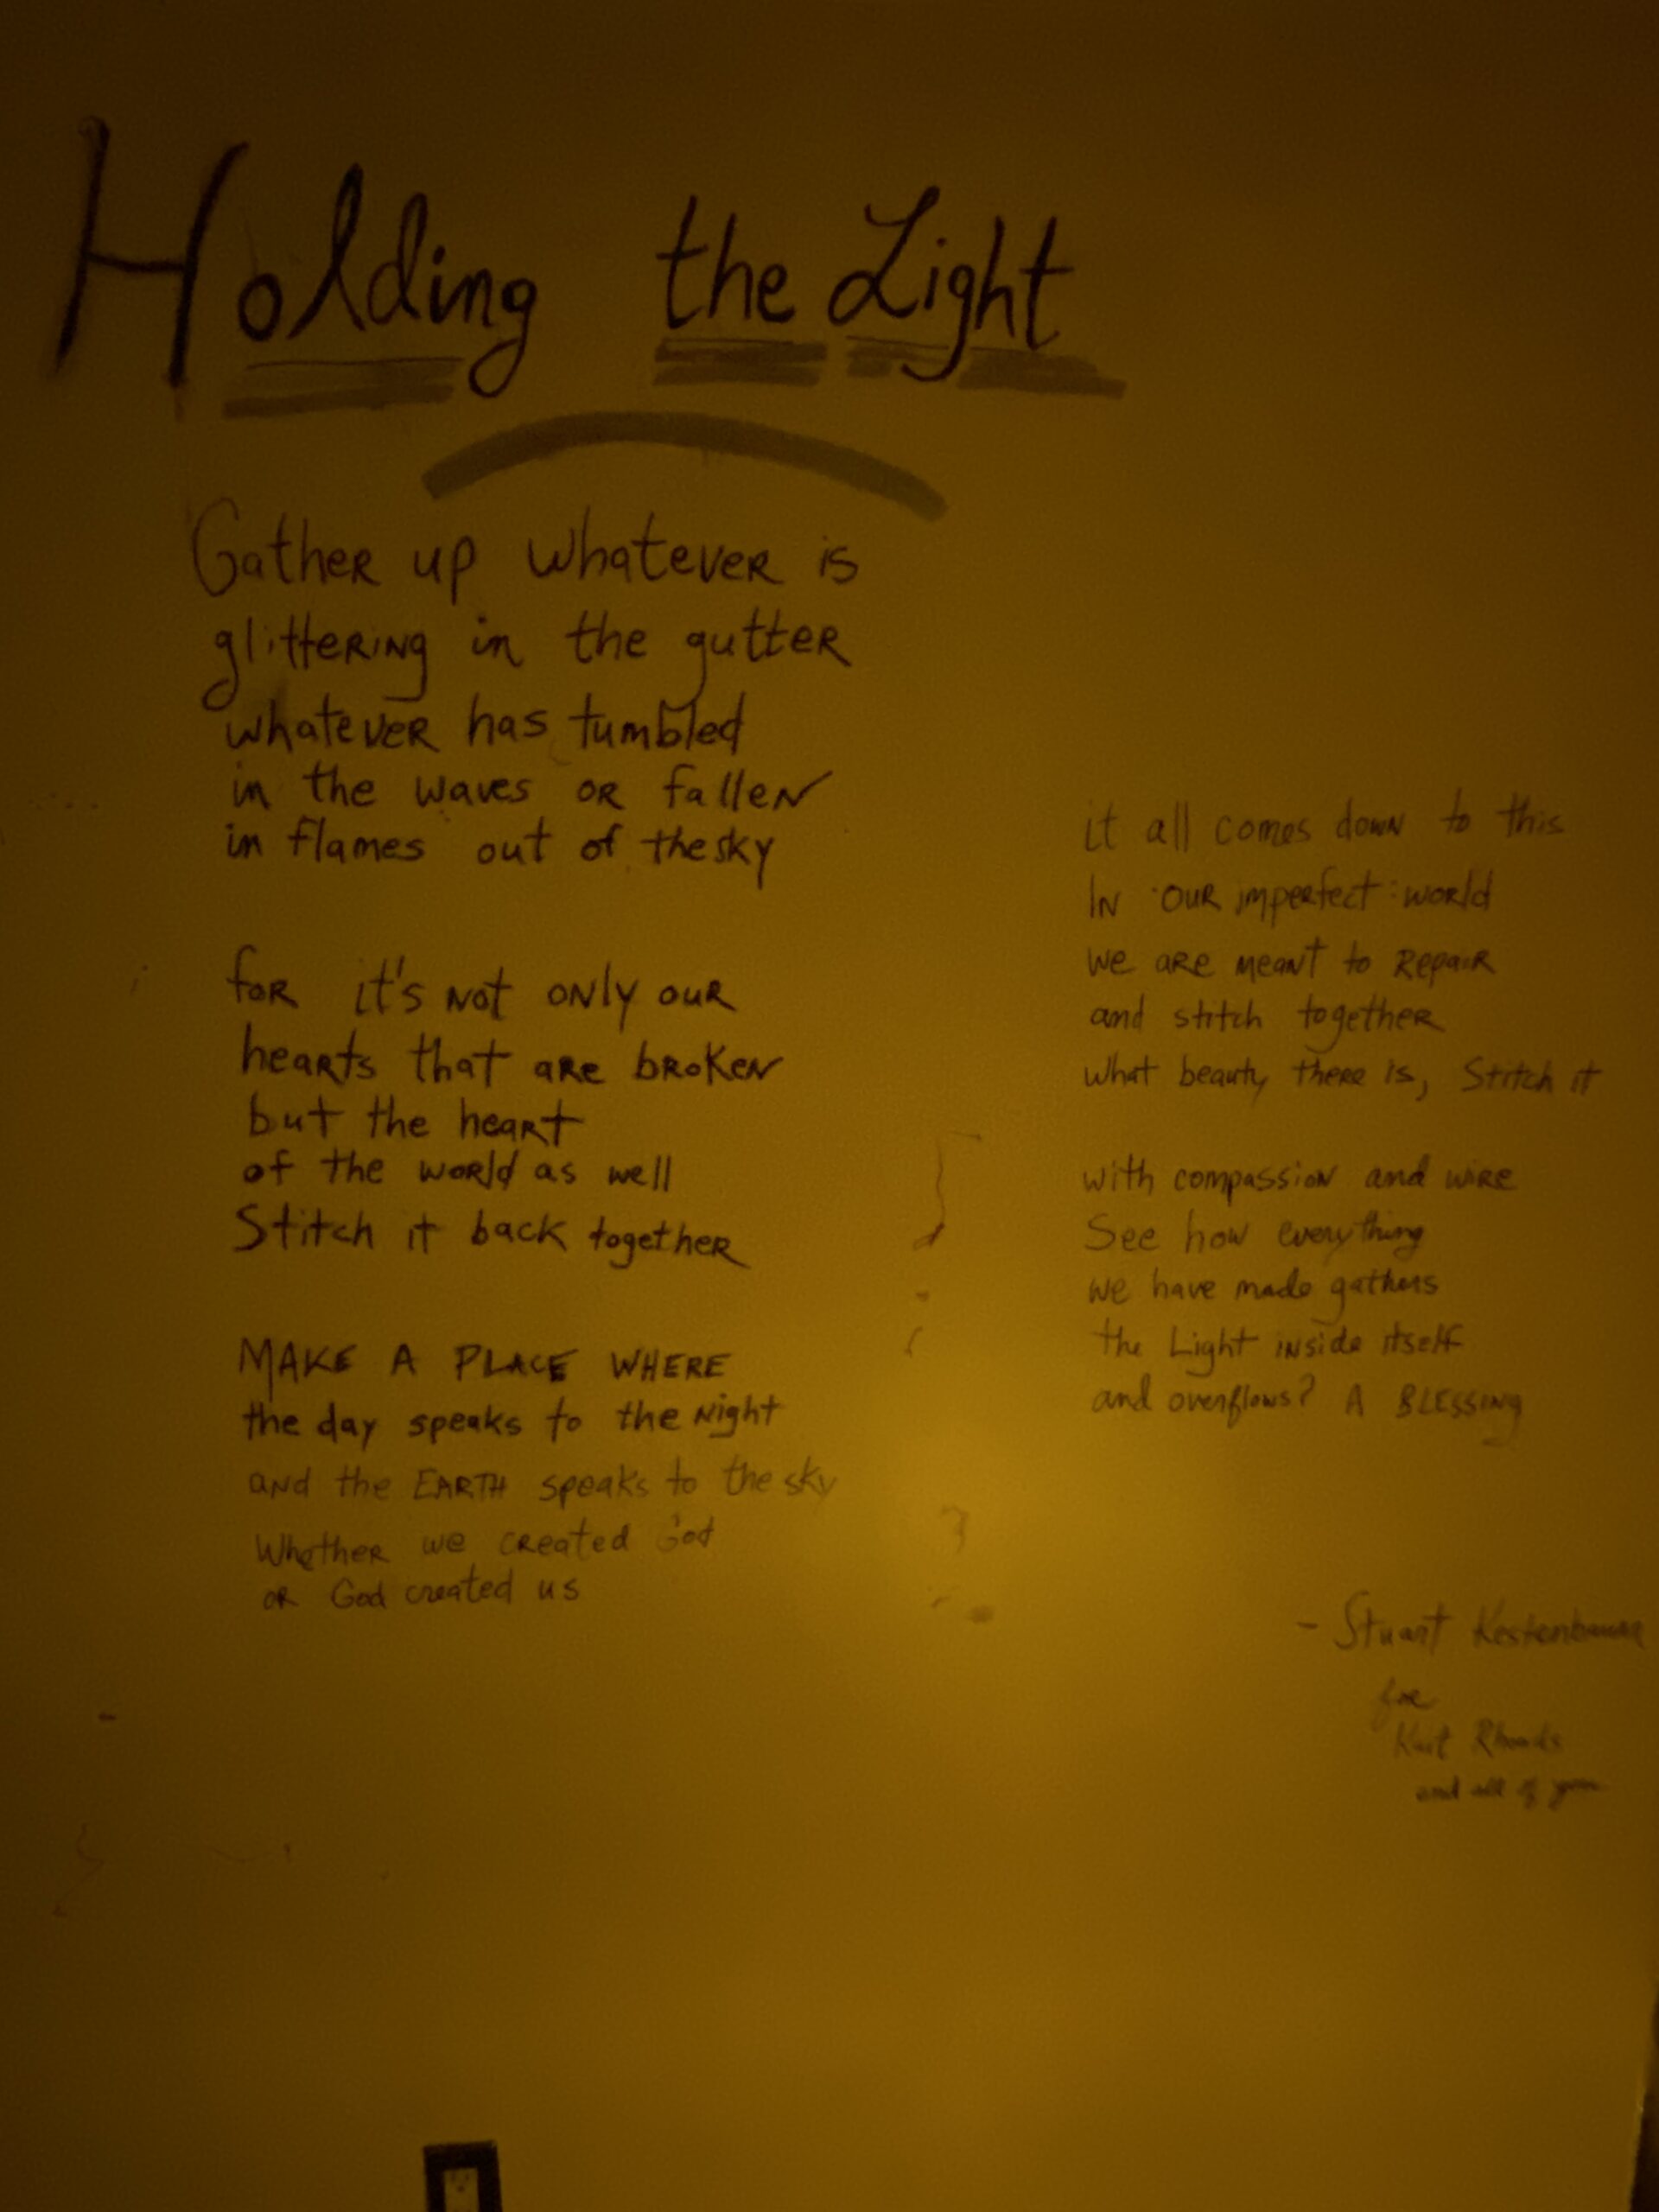 Holding the Light
Gather up whatever is
glittering in the gutter
whatever has tumbled
in the waves or fallen
in flames out of the sky
for it's not only our
hearts that are broken
but the heart
of the world as well
Stitch it back together
MAKE A PLACE WHERE
the day speaks to the night
and the EARTH speaks to the sky
Whether we created God
or God created us
it all comes down to this
In our imperfect world
we are meant to repair
and stitch together
what beauty there is, Stitch it
with compassion and wire
See how everything
we have made gathers
the Light inside itself
and overflows? A BLESSING
- Stuart Kestenbaum
for
Rhoads
and all of you